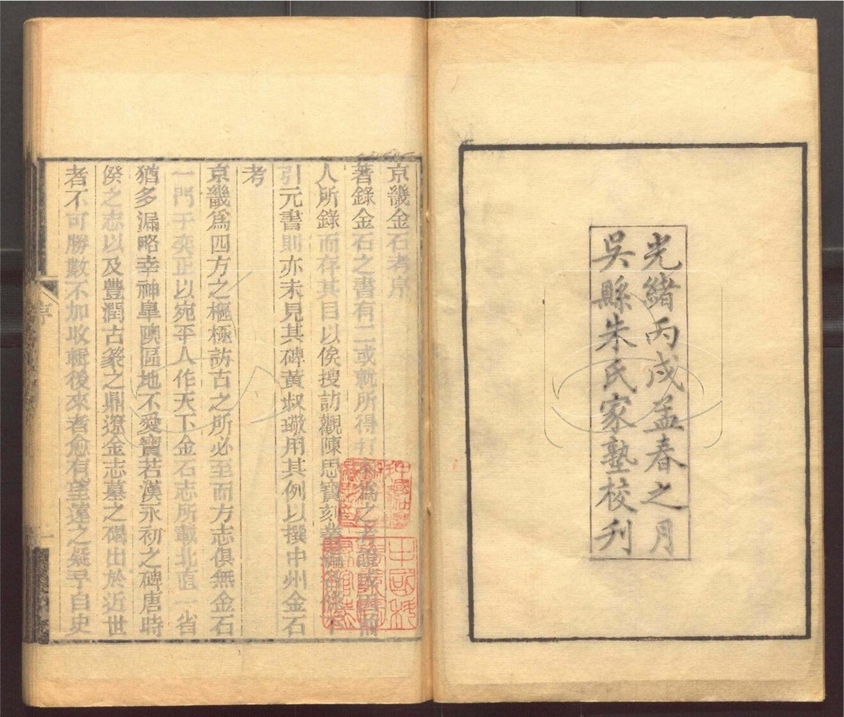 光緒丙戌孟春之月
吳縣朱氏家塾校刊
京畿金石考序
著錄金石之書有二或就所得打本爲之考證或因前
人所錄而存其目以俟搜訪觀陳思寶刻叢編各條下
引元書則亦未見其碑黃叔璥用其例以撰中州金石
考
京畿爲四方之極極訪古之所必至而方志俱無金石
一門于奕正以宛平人作天下金石志所載北直一省
猶多漏略幸神皋隩區地不愛寶若漢永初之碑唐時
侯之志以及豐潤古篆之鼎遼金志墓之碣出於近世
者不可勝數不加收輯後來者愈有望蓋之疑予自史
序
一